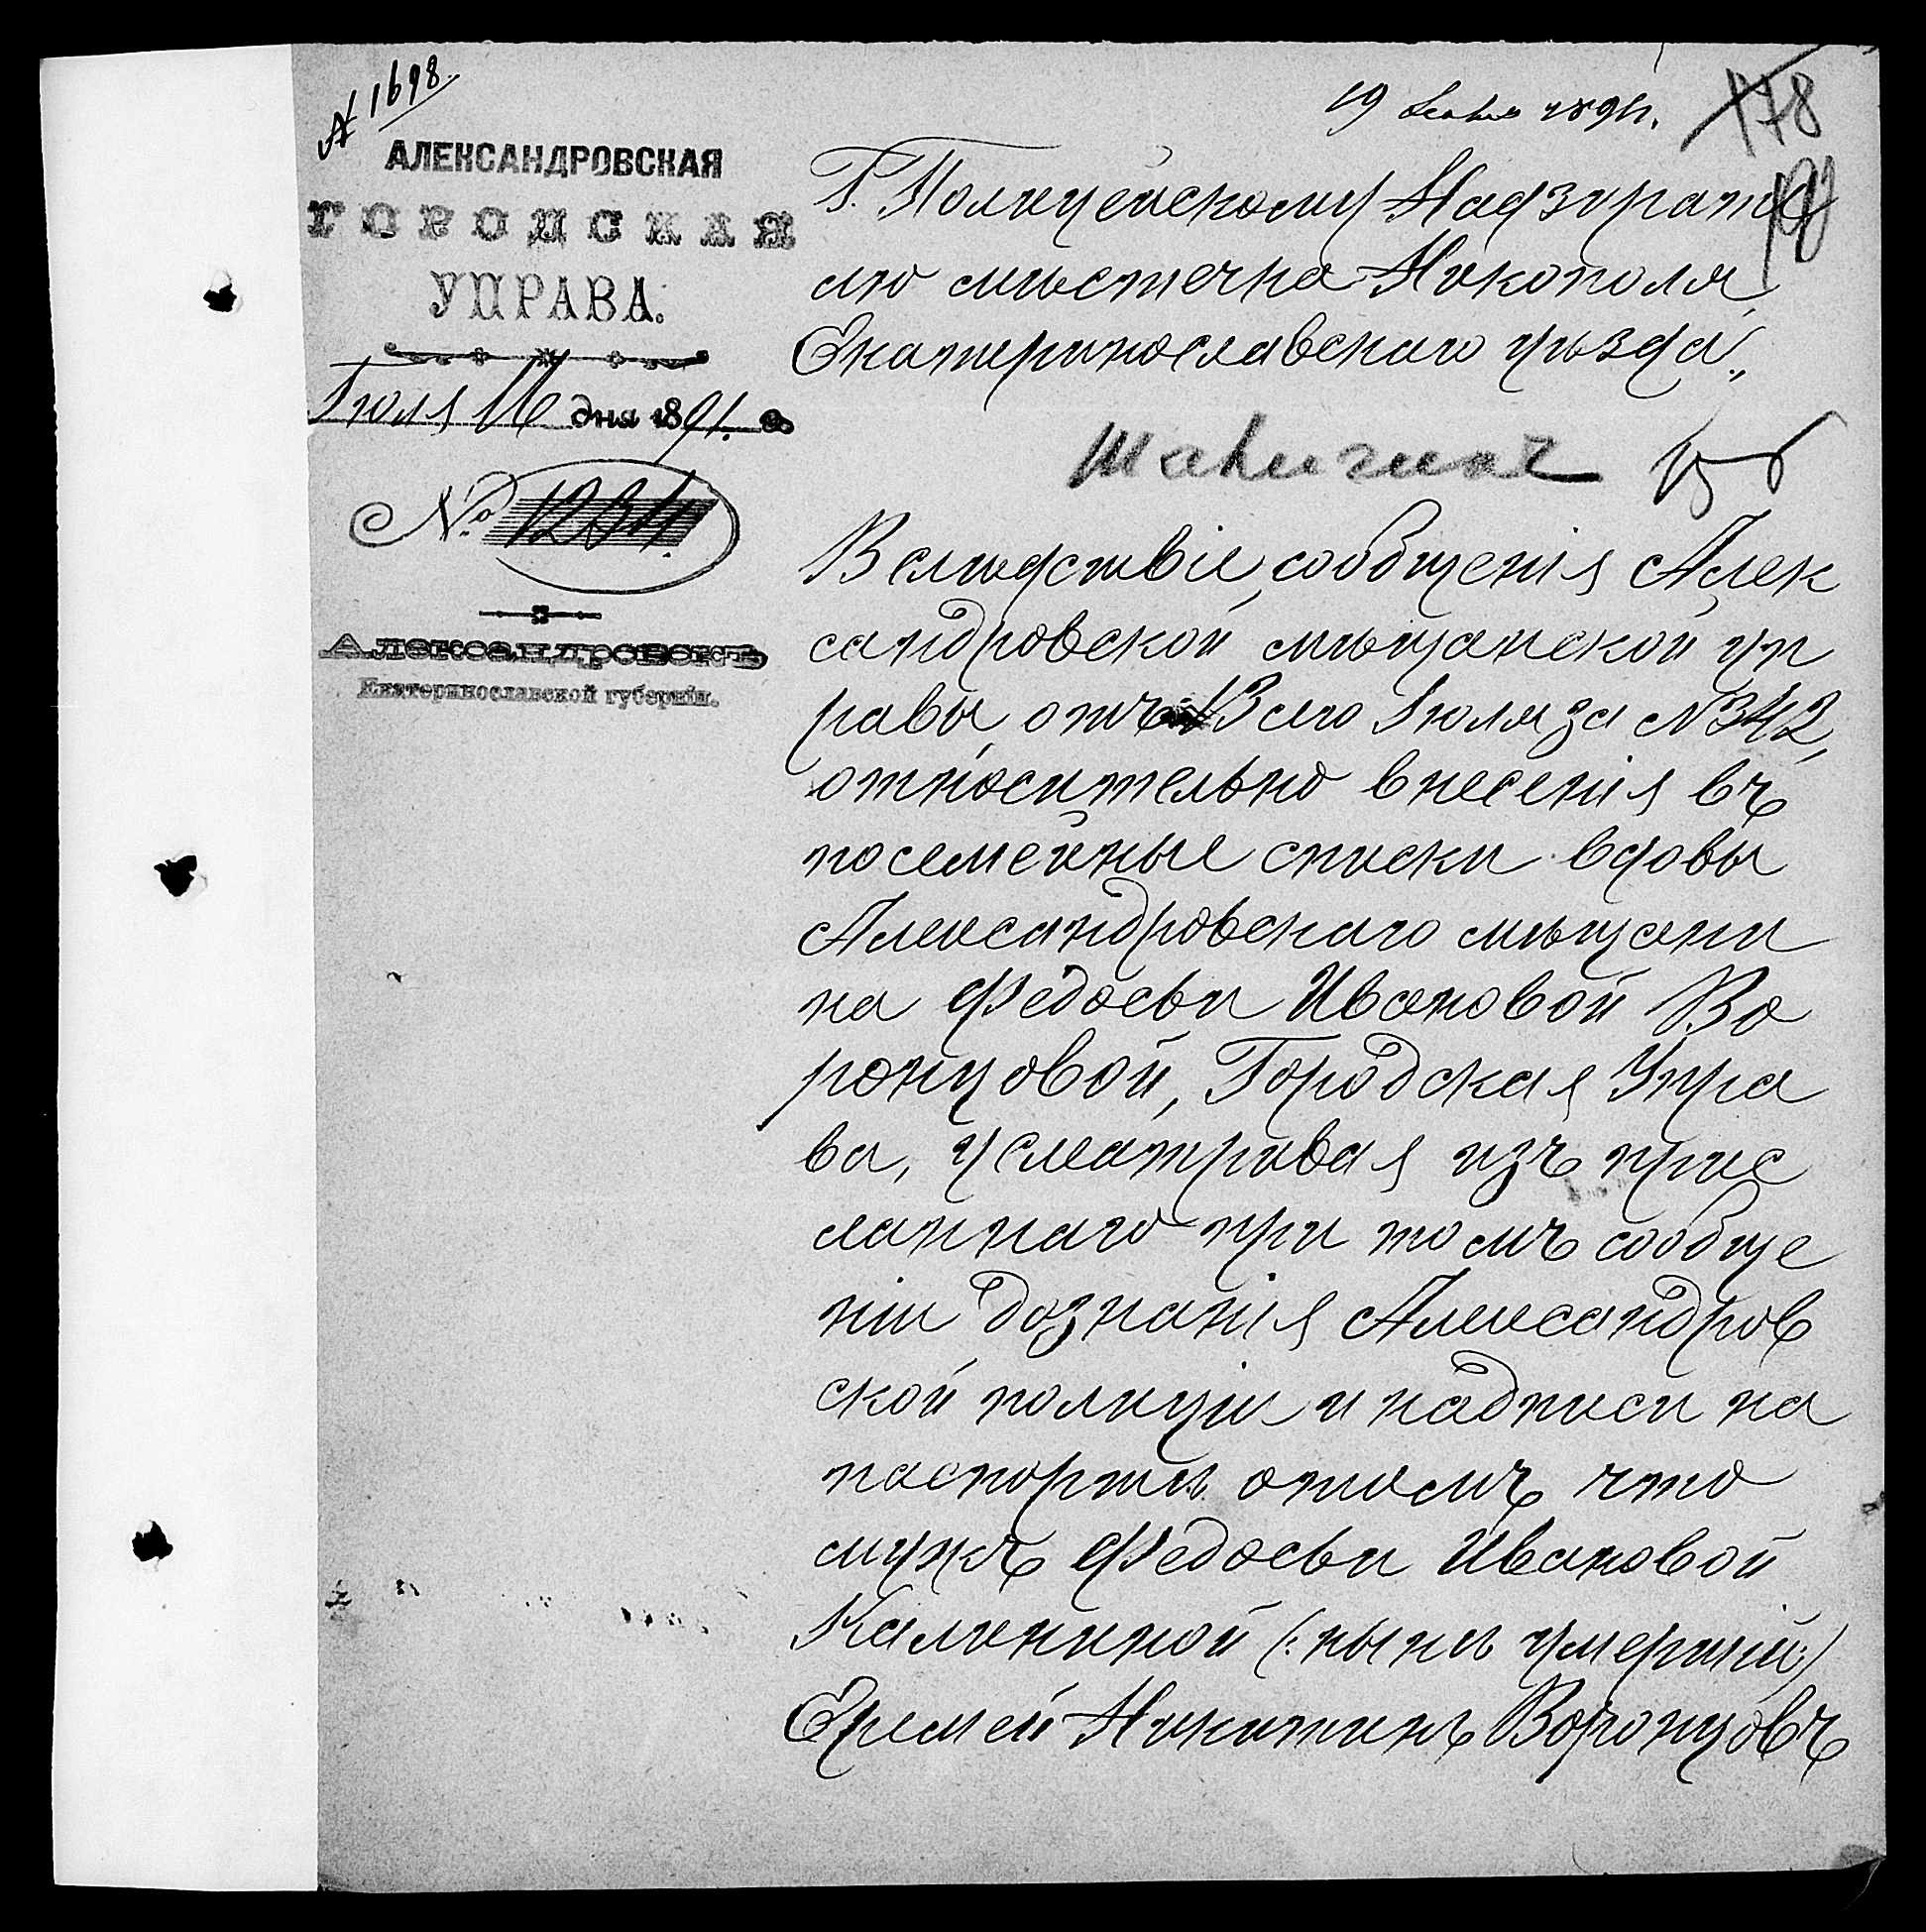 № 1698.
АЛЕКСАНДРОВСКАЯ
ГОРОДСКАЯ
УПРАВА.
Іюля 16 дня 1891.
№ 1234.
Александровскъ
Екатеринославской губерніи.
19
178
Г. Полицейскому Надзирате
лю мѣстечка Никополя,
Екатеринославскаго уѣзда,,
Вслѣдствіе сообщенія Алек
сандровской мѣщанской уп
равы, отъ 13 сего Іюля за № 342,
относительно внесенія въ
посемейные списки вдовы
Александровскаго мѣщани
на Федосьи Ивановой Во
ронцовой, Городская Упра
ва, усматривая изъ прис
ланнаго при томъ сообще
ніи дознанія Александров
ской полиціи и надписи на
паспортѣ отомъ что
мужъ Федосьи Ивановой
Калининой (: нынѣ умершій:)
Еремей Никитинъ Воронцовъ